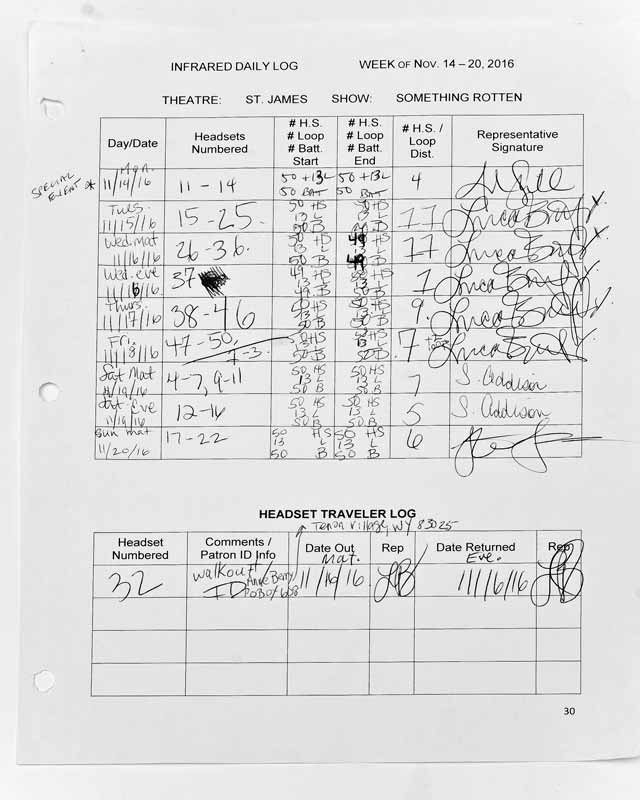 INFRARED DAILY LOG WEEK OF NOV. 14 – 20, 2016
THEATRE: ST. JAMES SHOW: SOMETHING ROTTEN
Day/Date Headsets Numbered # H.S. # Loop # Batt. Start # H.S. # Loop # Batt. End # H.S. / Loop Dist. Representative Signature
SPECIAL EVENT * Mon. 11/14/16 11 - 14 50 + 13L 50 BAT 50 + 13L 50 BAT 4
Tues. 11/15/16 15 - 25. 50 HS 13 L 50 B 50 HS 13 L 50 B 11
Wed. mat 11/16/16 26 - 36. 50 HS 13 L 50 B 49 11
Wed. eve 11/16/16 37 49 HS 13 L 49 B 50 HS 13 L 50 B 1
Thurs. 11/17/16 38 - 46 50 HS 13 L 50 B 50 HS 13 L 50 B 9.
Fri. 11/18/16 47 - 50, 1-3. 50 HS 13 L 50 B 50 HS 13 L 50 B 7
Sat Mat 11/19/16 4-7, 9-11 50 HS 13 L 50 B 50 HS 13 L 50 B 7 S. Addison
Sat Eve 11/19/16 12-16 50 HS 13 L 50 B 50 HS 13 L 50 B 5 S. Addison
Sun mat 11/20/16 17-22 50 HS 13 L 50 B 50 HS 13 L 50 B 6
HEADSET TRAVELER LOG
Village, WY 83025
Headset Numbered Comments / Patron ID Info Date Out Rep Date Returned Rep
32 walkout! ID Anne Berry PO Box 658 Mat. 11/16/16 LB Eve. 11/16/16 LB
30